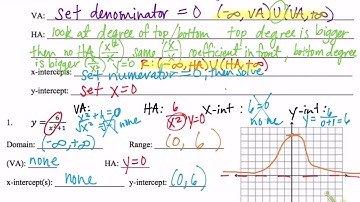 VA: set denominator = 0 (-∞, VA) U (VA, +∞)
HA: look at degree of top/bottom top degree is bigger
then no HA (x³/x²), same (x²/x²) coefficient in front, bottom degree
is bigger (x/x²) y=0 R: (-∞, HA) U (HA, +∞)
x-intercepts: set numerator = 0, then solve
y-intercept: set x=0
VA: HA: 6/x² y=0 X-int: 6=0 none y-int: y=6/(0+1)=6
1. y = 6/(x²+1) x²+1=0 √x²=√-1 none
Domain: (-∞, +∞) Range: (0, 6)
(VA): none HA: y=0
x-intercept(s): none y-intercept: (0, 6)